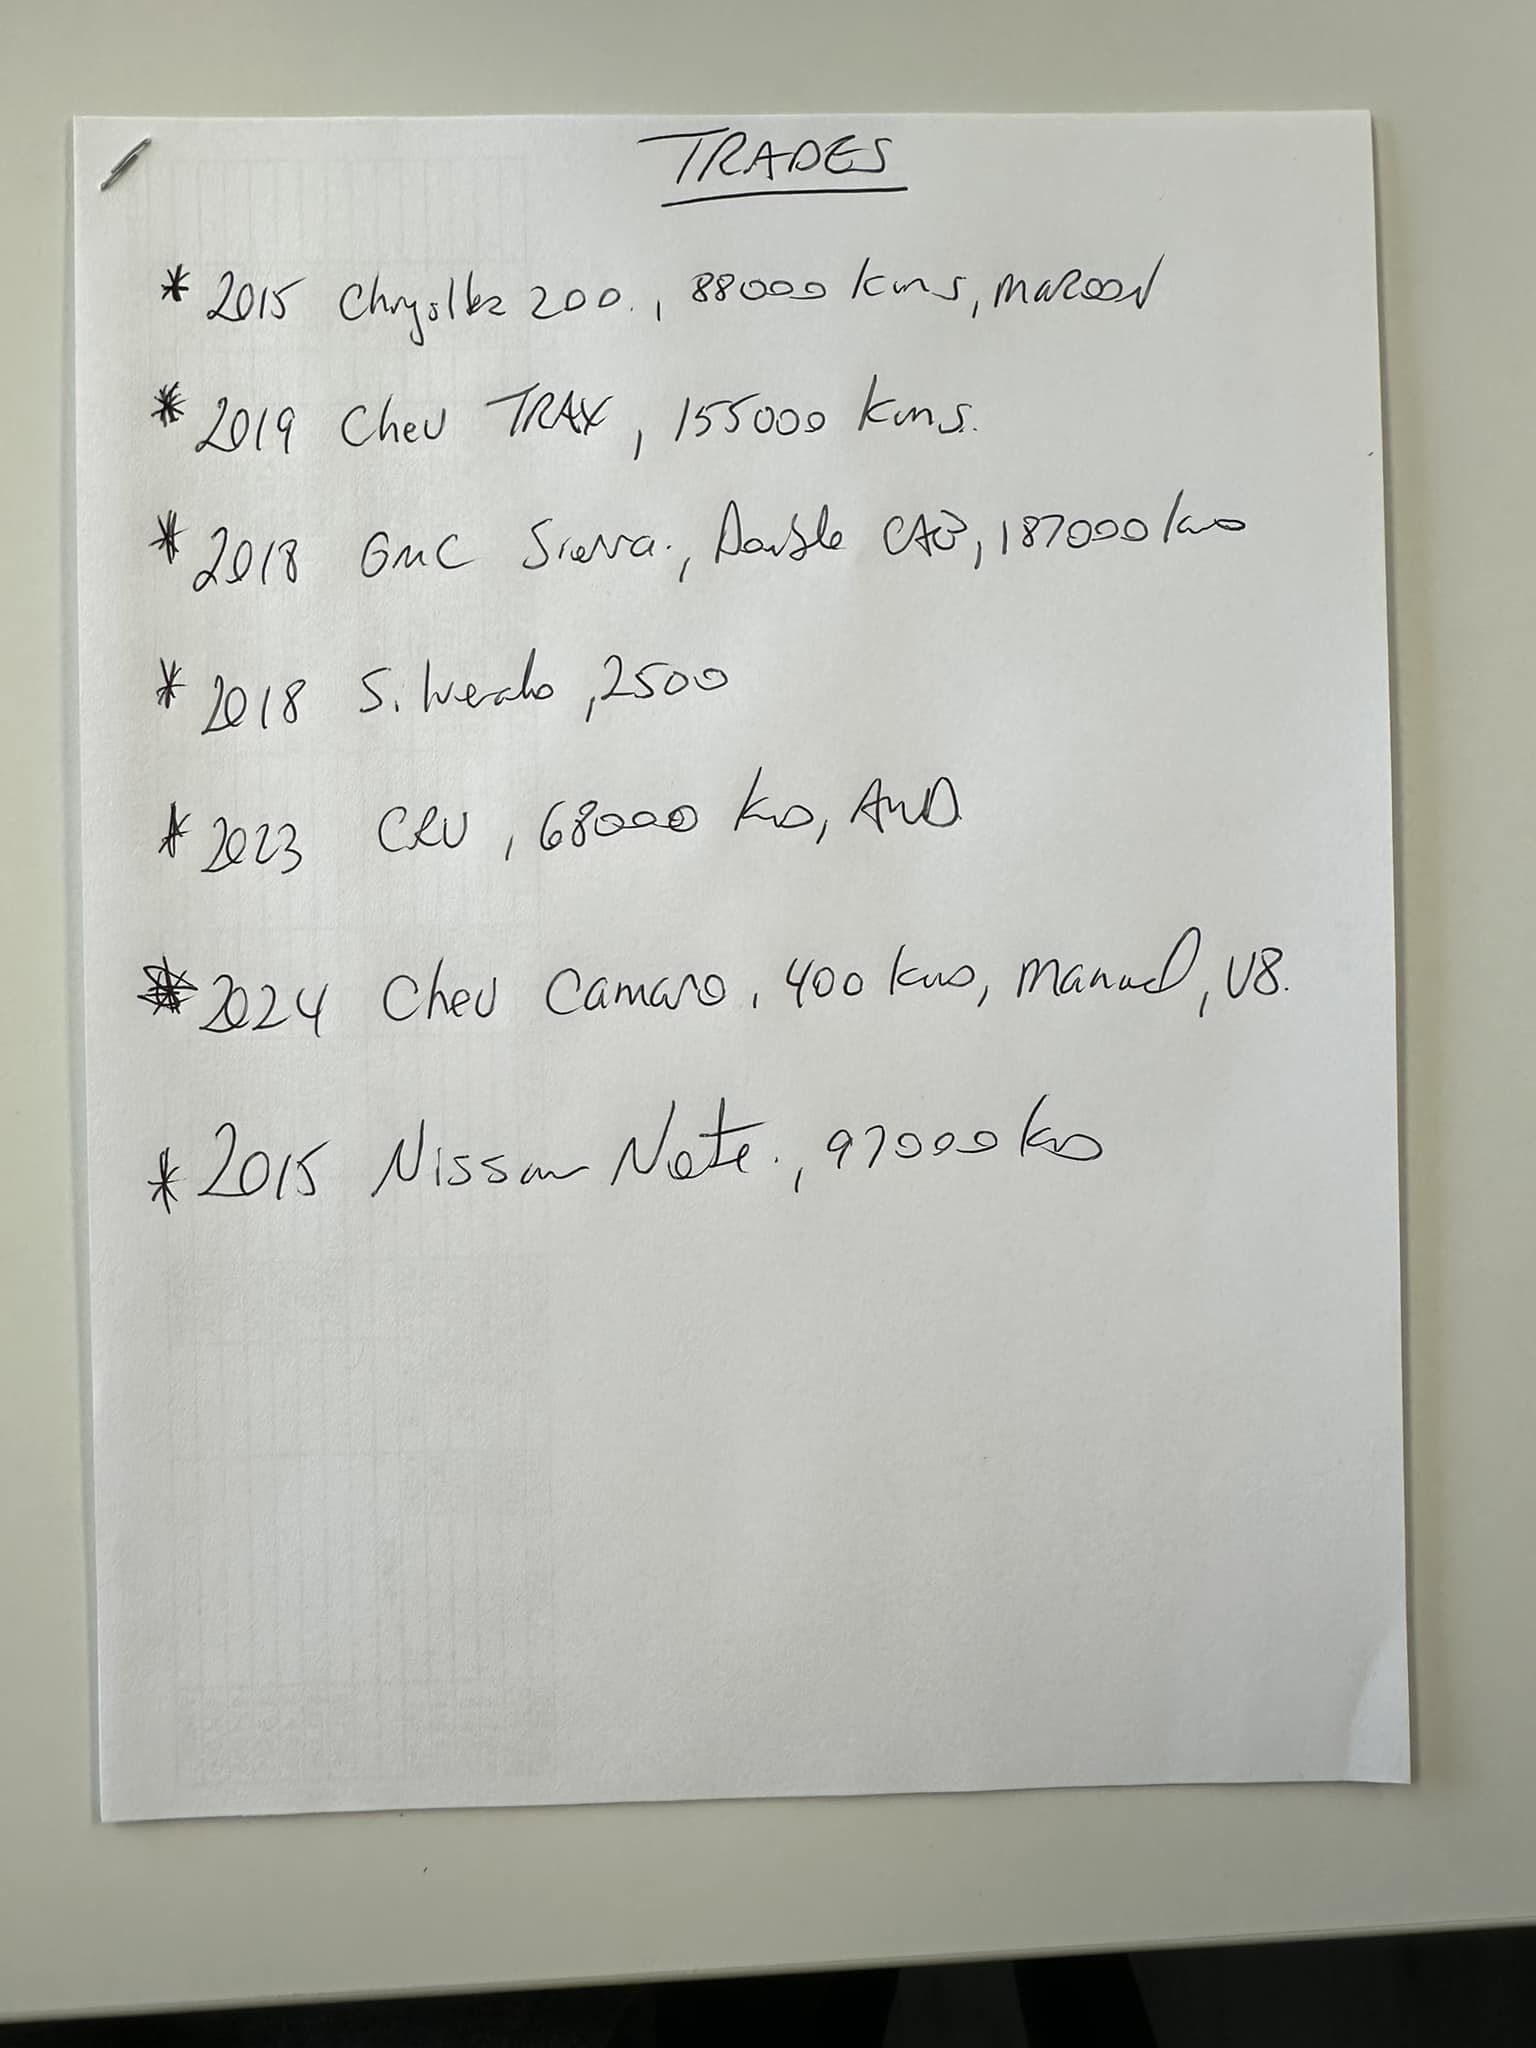 TRADES
* 2015 Chrysler 200., 88000 kms, maroon
* 2019 Chev TRAX, 155000 kms.
* 2018 GMC Sierra., Double CAB, 187000 kms
* 2018 Silverado, 2500
* 2023 CRV, 68000 kms, AWD
* 2024 Chev Camaro, 400 kms, manual, V8.
* 2015 Nissan Note., 97000 kms